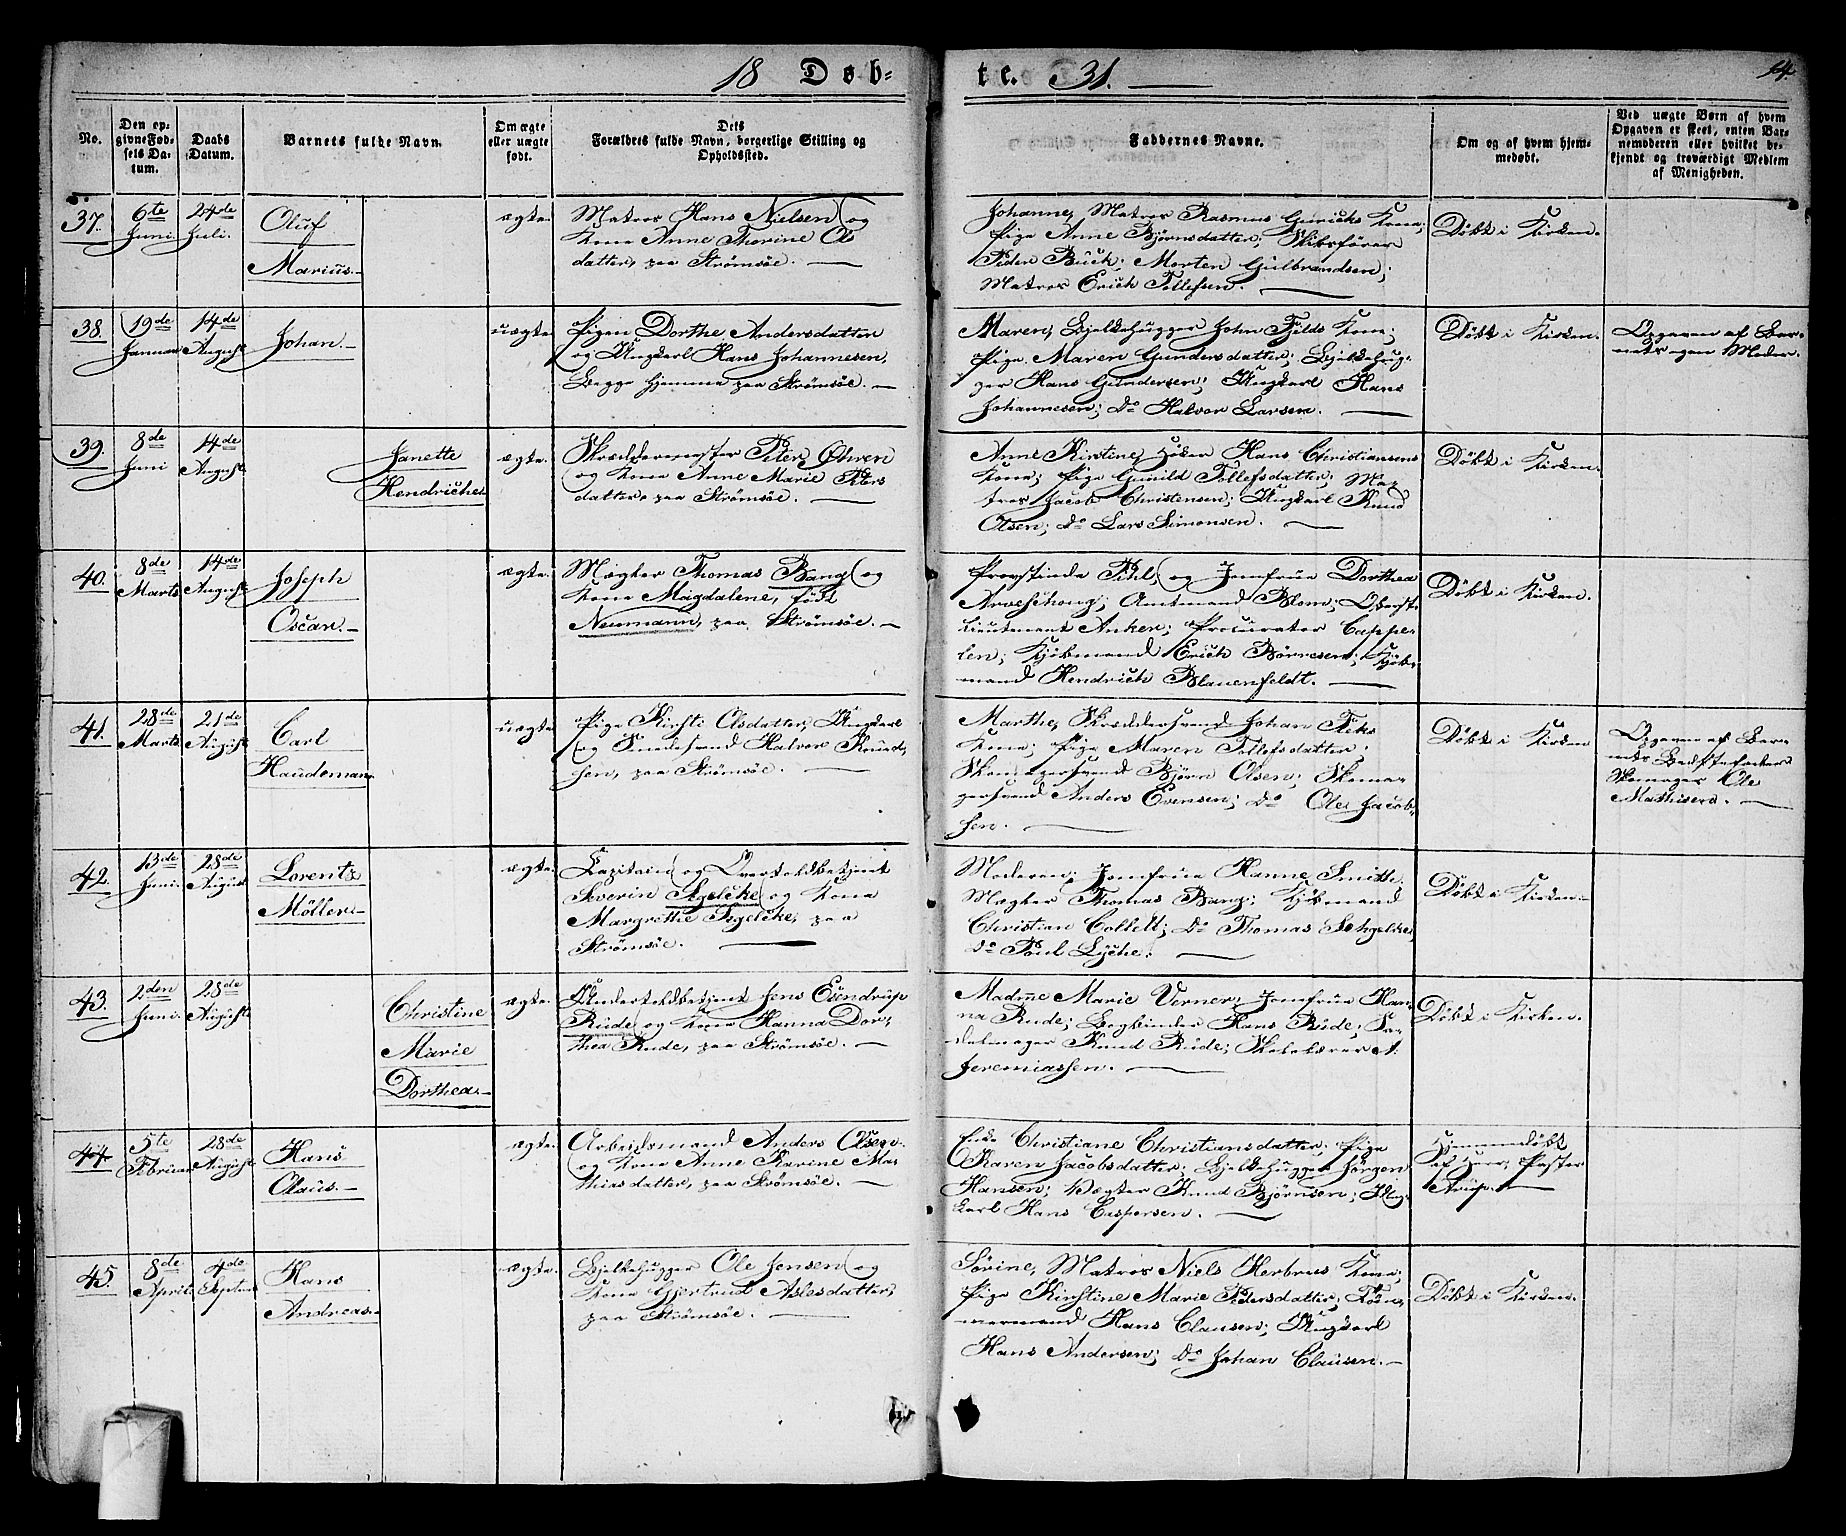 18 Døb-
te. 31.
No.
Den op-
givne Fød-
sels Da-
tum.
Daabs
Datum.
Barnets fulde Navn.
Om ægte
eller uægte
født.
Dets
Forældres fulde Navn, borgerlige Stilling og
Opholdssted.
Faddernes Navne.
Om og af hvem hjem-
medøbt.
Ved uægte Børn af hvem
Opgaven er skeet, enten Bar-
nemoderen eller hvilket be-
kjendt og troværdigt Medlem
af Menigheden.
37.
6te
Juni.
24de
Juli.
Oluf
Marius.
ægte.
Matros Hans Nielsen og
Kone Anne Thorine Ols
datter, paa Strømsöe.
Johanne, Matros Rasmus Kone;
Pige Anne Björnsdatter; Skibsförer
Peder Buck; Morten Gulbrandsen;
Matros Erich Tollefsen.
Döbt i Kirken.
38.
19de
Januar
14de
August
Johan.
uægte.
Pigen Dorthe Andersdatter
og Ungkarl Hans Johannesen,
Begge hjemme paa Strömsöe.
Maren, Bjelkehugger John Fjelds Kone;
Pige Maren Gundersdatter; Bjelkehug-
ger Hans Gundersen; Ungkarl Hans
Johannesen; Do Halvor Larsen.
Döbt i Kirken.
Opgaven af Bar-
nets egen Moder.
39.
8de
Juni
14de
August
Janette
Hendriche
ægte.
Skræddermester Peter Ohren
og Kone Anne Marie Peders
datter, paa Strömsöe.
Anne Kirstine, Höker Hans Christiansens
Kone; Pige Gunild Tollefsdatter; Ma-
tros Jacob Christensen; Ungkarl Knud
Olsen; Do Lars Simonsen.
Döbt i Kirken.
40.
8de
Marts
14de
August
Joseph
Oscar.
ægte.
Mægler Thomas Bang og
Kone Magdalene, född
Neumann, paa Strömsöe.
Provstinde Pihl, og Jomfrue Dorthea
Arveschoug; Amtmand Blom; Oberst-
lieutnant Anker; Procurator Cappe-
len; Kjöbmand Erich Börresen; Kjöb-
mand Hendrich Blauenfeldt.
Döbt i Kirken.
41.
28de
Marts
21de
August
Carl
Haudeman
uægte
Pige Kirsti Olsdatter, Ungkarl
og Snedkersvend Halvor Knud-
sen, paa Strömsöe.
Marthe, Skræddersvend Johan
Kone; Pige Maren Tollefsdatter;
Skomagersvend Björn Olsen; Skoma-
gersvend Anders Evensen; Do Ole Jacob-
sen.
Döbt i Kirken
Opgaven af Bar-
nets Bedstefader
Skomager Ole
Mathisen.
42.
13de
Juni.
28de
August
Lorentz
Möller.
ægte.
Capitain og Overtoldbetjent
Severin Segelcke og Kone
Margrethe Segelcke, paa
Strömsöe.
Moderen; Jomfrue Hanne Smith;
Mægler Thomas Bang; Kjöbmand
Christian Collett; Do Thomas Schgelke;
Do Poul Lyche.
Döbt i Kirken.
43.
2den
Juni.
28de
August
Christine
Marie
Dorthea.
ægte.
Undertoldbetjent Jens Esendrup
Rude og Kone Hanna Dor-
thea Rude, paa Strömsöe.
Madme Marie Verner; Jomfrue Han-
na Rude; Bogbinder Hans Rude; Sa-
delmager Knud Rude; Skolelærer A.
Jeremiassen.
Döbt i Kirken.
44.
5te
Februar
28de
August
Hans
Claus.
ægte.
Arbeidsmand Anders Olsen
og Kone Anne Karine Mat-
thiasdatter, paa Strömsöe.
Enke Christiane Christiansdatter; Pige
Karen Jacobsdatter; Bjelkehugger Jörgen
Hansen; Vægter Knud Björnsen; Ung-
karl Hans Caspersen.
Hjemmedöbt
af Herr Pastor
Arup.
45.
8de
April
4de
Septbr
Hans
Andreas.
ægte.
Bjelkehugger Ole Jensen og
Kone Gjertrud Aslesdatter,
paa Strömsöe.
Sörine, Matros Niels Kone;
Pige Kirstine Marie Pedersdatter; Töm-
mermand Hans Clausen; Ungkarl
Hans Andersen; Do Johan Clausen.
Döbt i Kirken.